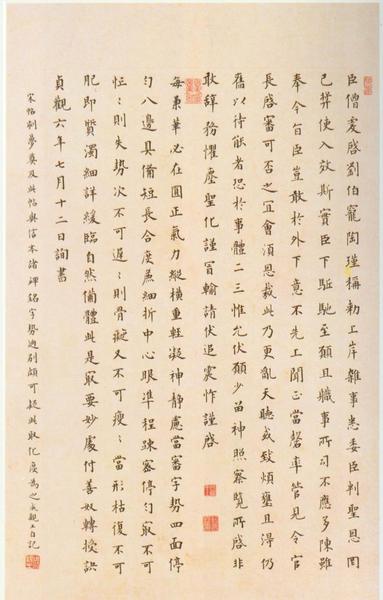 臣僧虔啓劉伯寵陶瑾稱勅上岸雜事悉委臣判聖恩罔
已弊使入效斯實臣下驅馳至願且職事所司不應多陳雖
奉今旨臣豈敢於外下意不先上聞正當罄率管見令官
長啓審可否之宜會須恩裁此乃更亂天聽或致煩壅且滯仍
舊以待能者恐於事體二三惟允伏願少留神照察覽所啓非
敢辭務懼塵聖化謹冒輸請伏追震怍謹啓
每秉筆必在圓正氣力縱橫重輕凝神靜慮當審字勢四面停
勻八邊具備短長合度麁細折中心眼準程疎密停勻最不可
忙〻則失勢次不可遲〻則骨癡又不可瘦〻當形枯復不可
肥即質濁細詳緩臨自然備體此是最要妙處付善奴轉授訣
貞觀六年七月十二日詢書
宋帖刺夢奠及此帖與信本諸碑銘字勢迥別頗可疑此取化度為之成親王自記